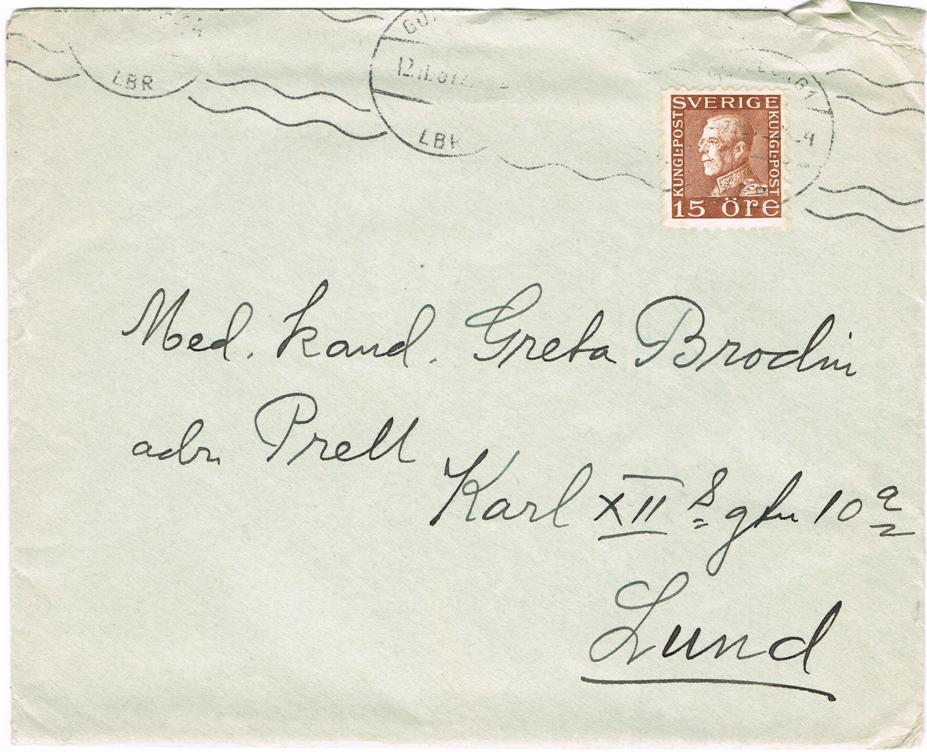 LBR
LBR
SVERIGE
KUNGL·POST
KUNGL·POST
15 ÖRE
Med. kand. Greta Brodin
adr. Prell
Karl XII s gtn 10 a
Lund